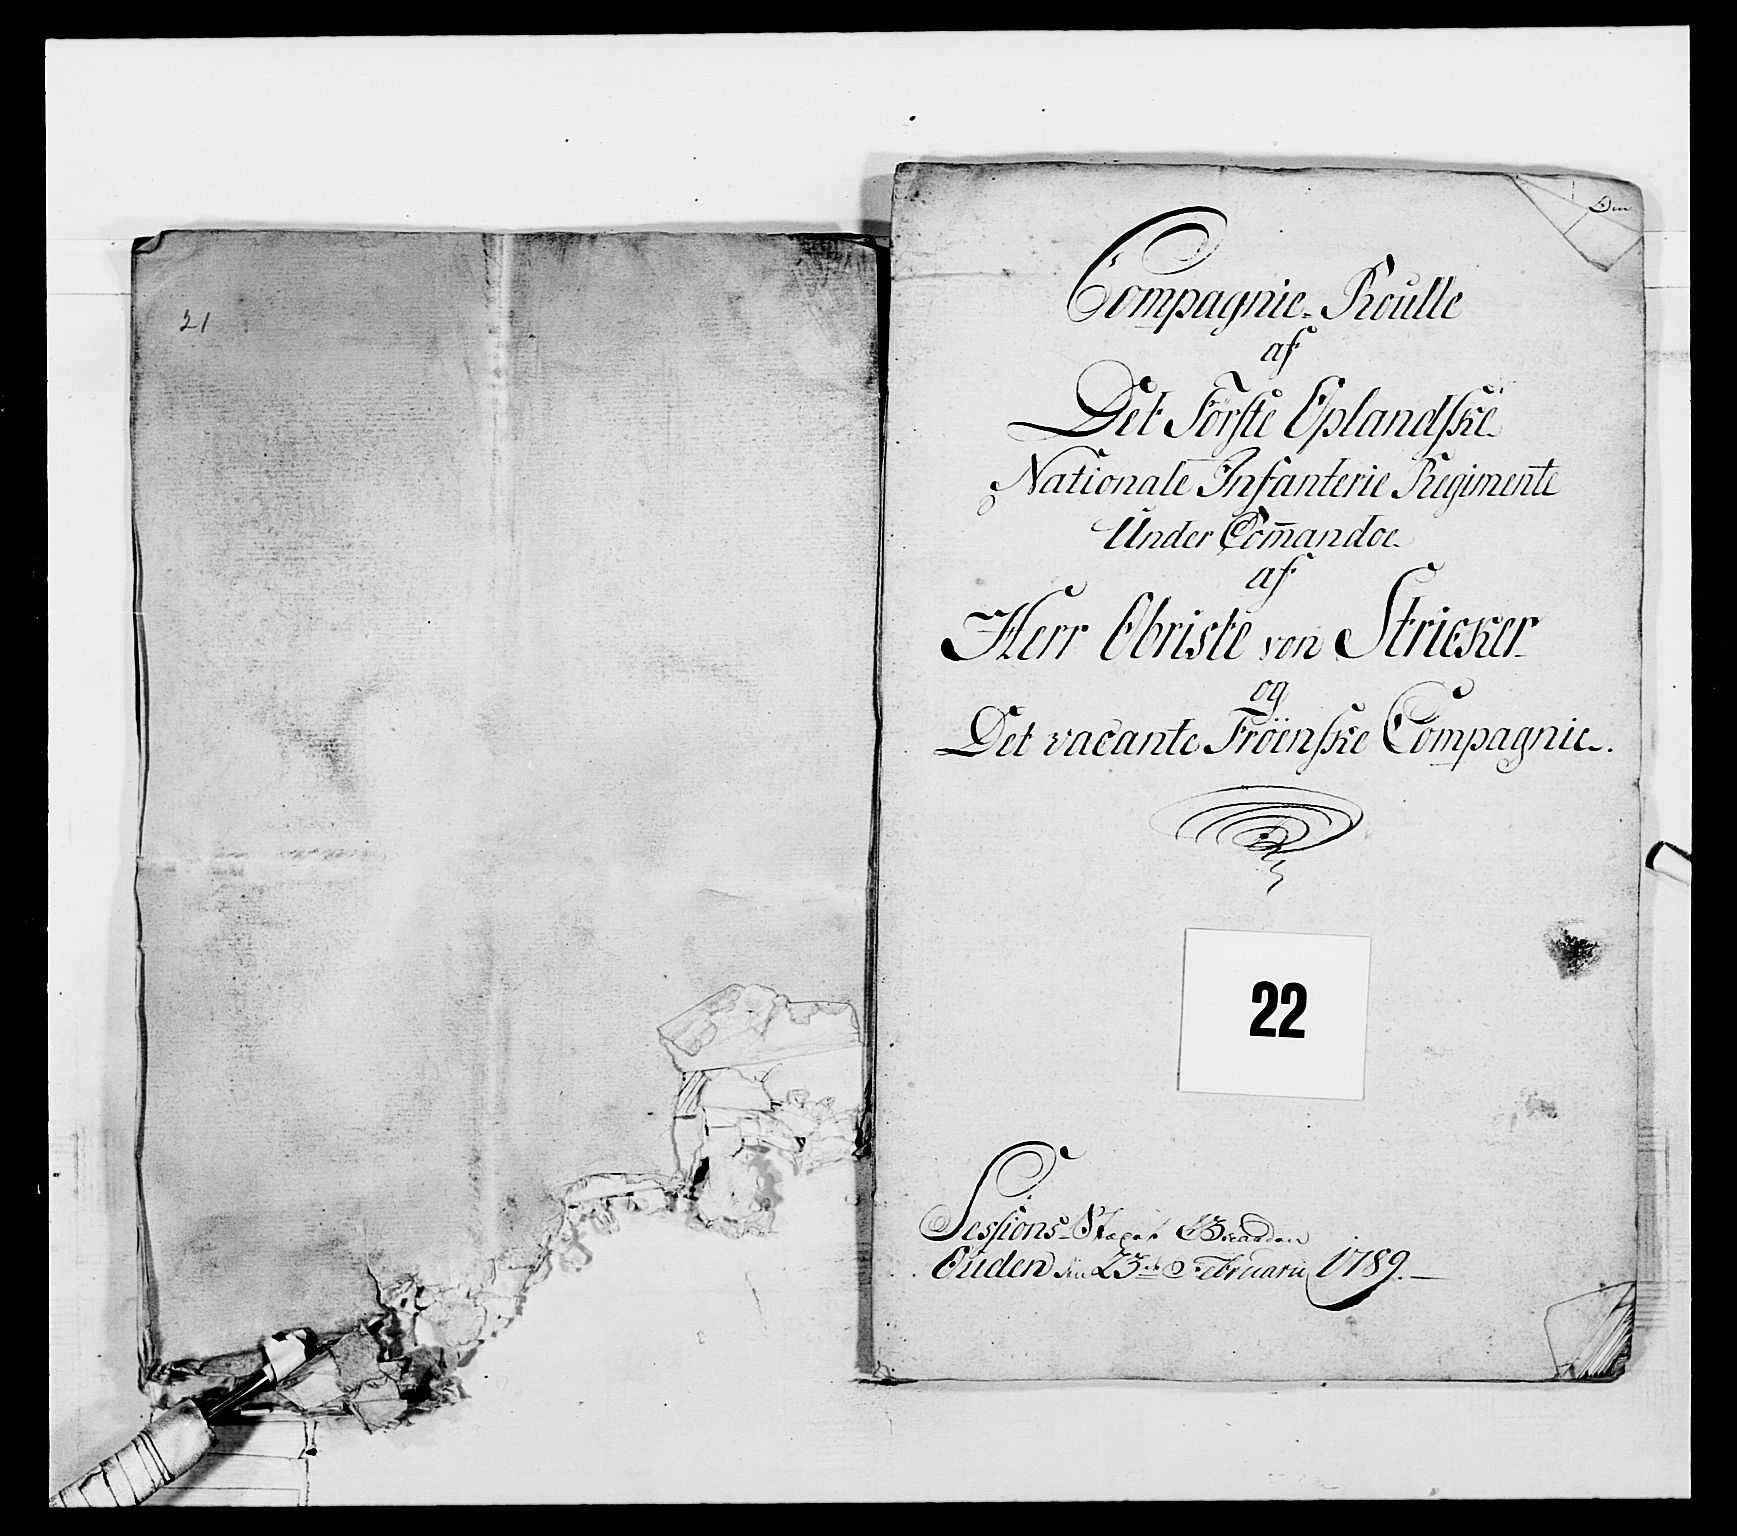 21
Den
Compagnie-Roulle
af
Det Første Oplandske
Nationale Infanterie Regimente
Under Com̄andoe
af
Herr Obriste von Stricker
og
Det vacante Fröenske Compagnie.
22
Sessions-Stædet Breadden
Enden den 23de Februarii 1789.